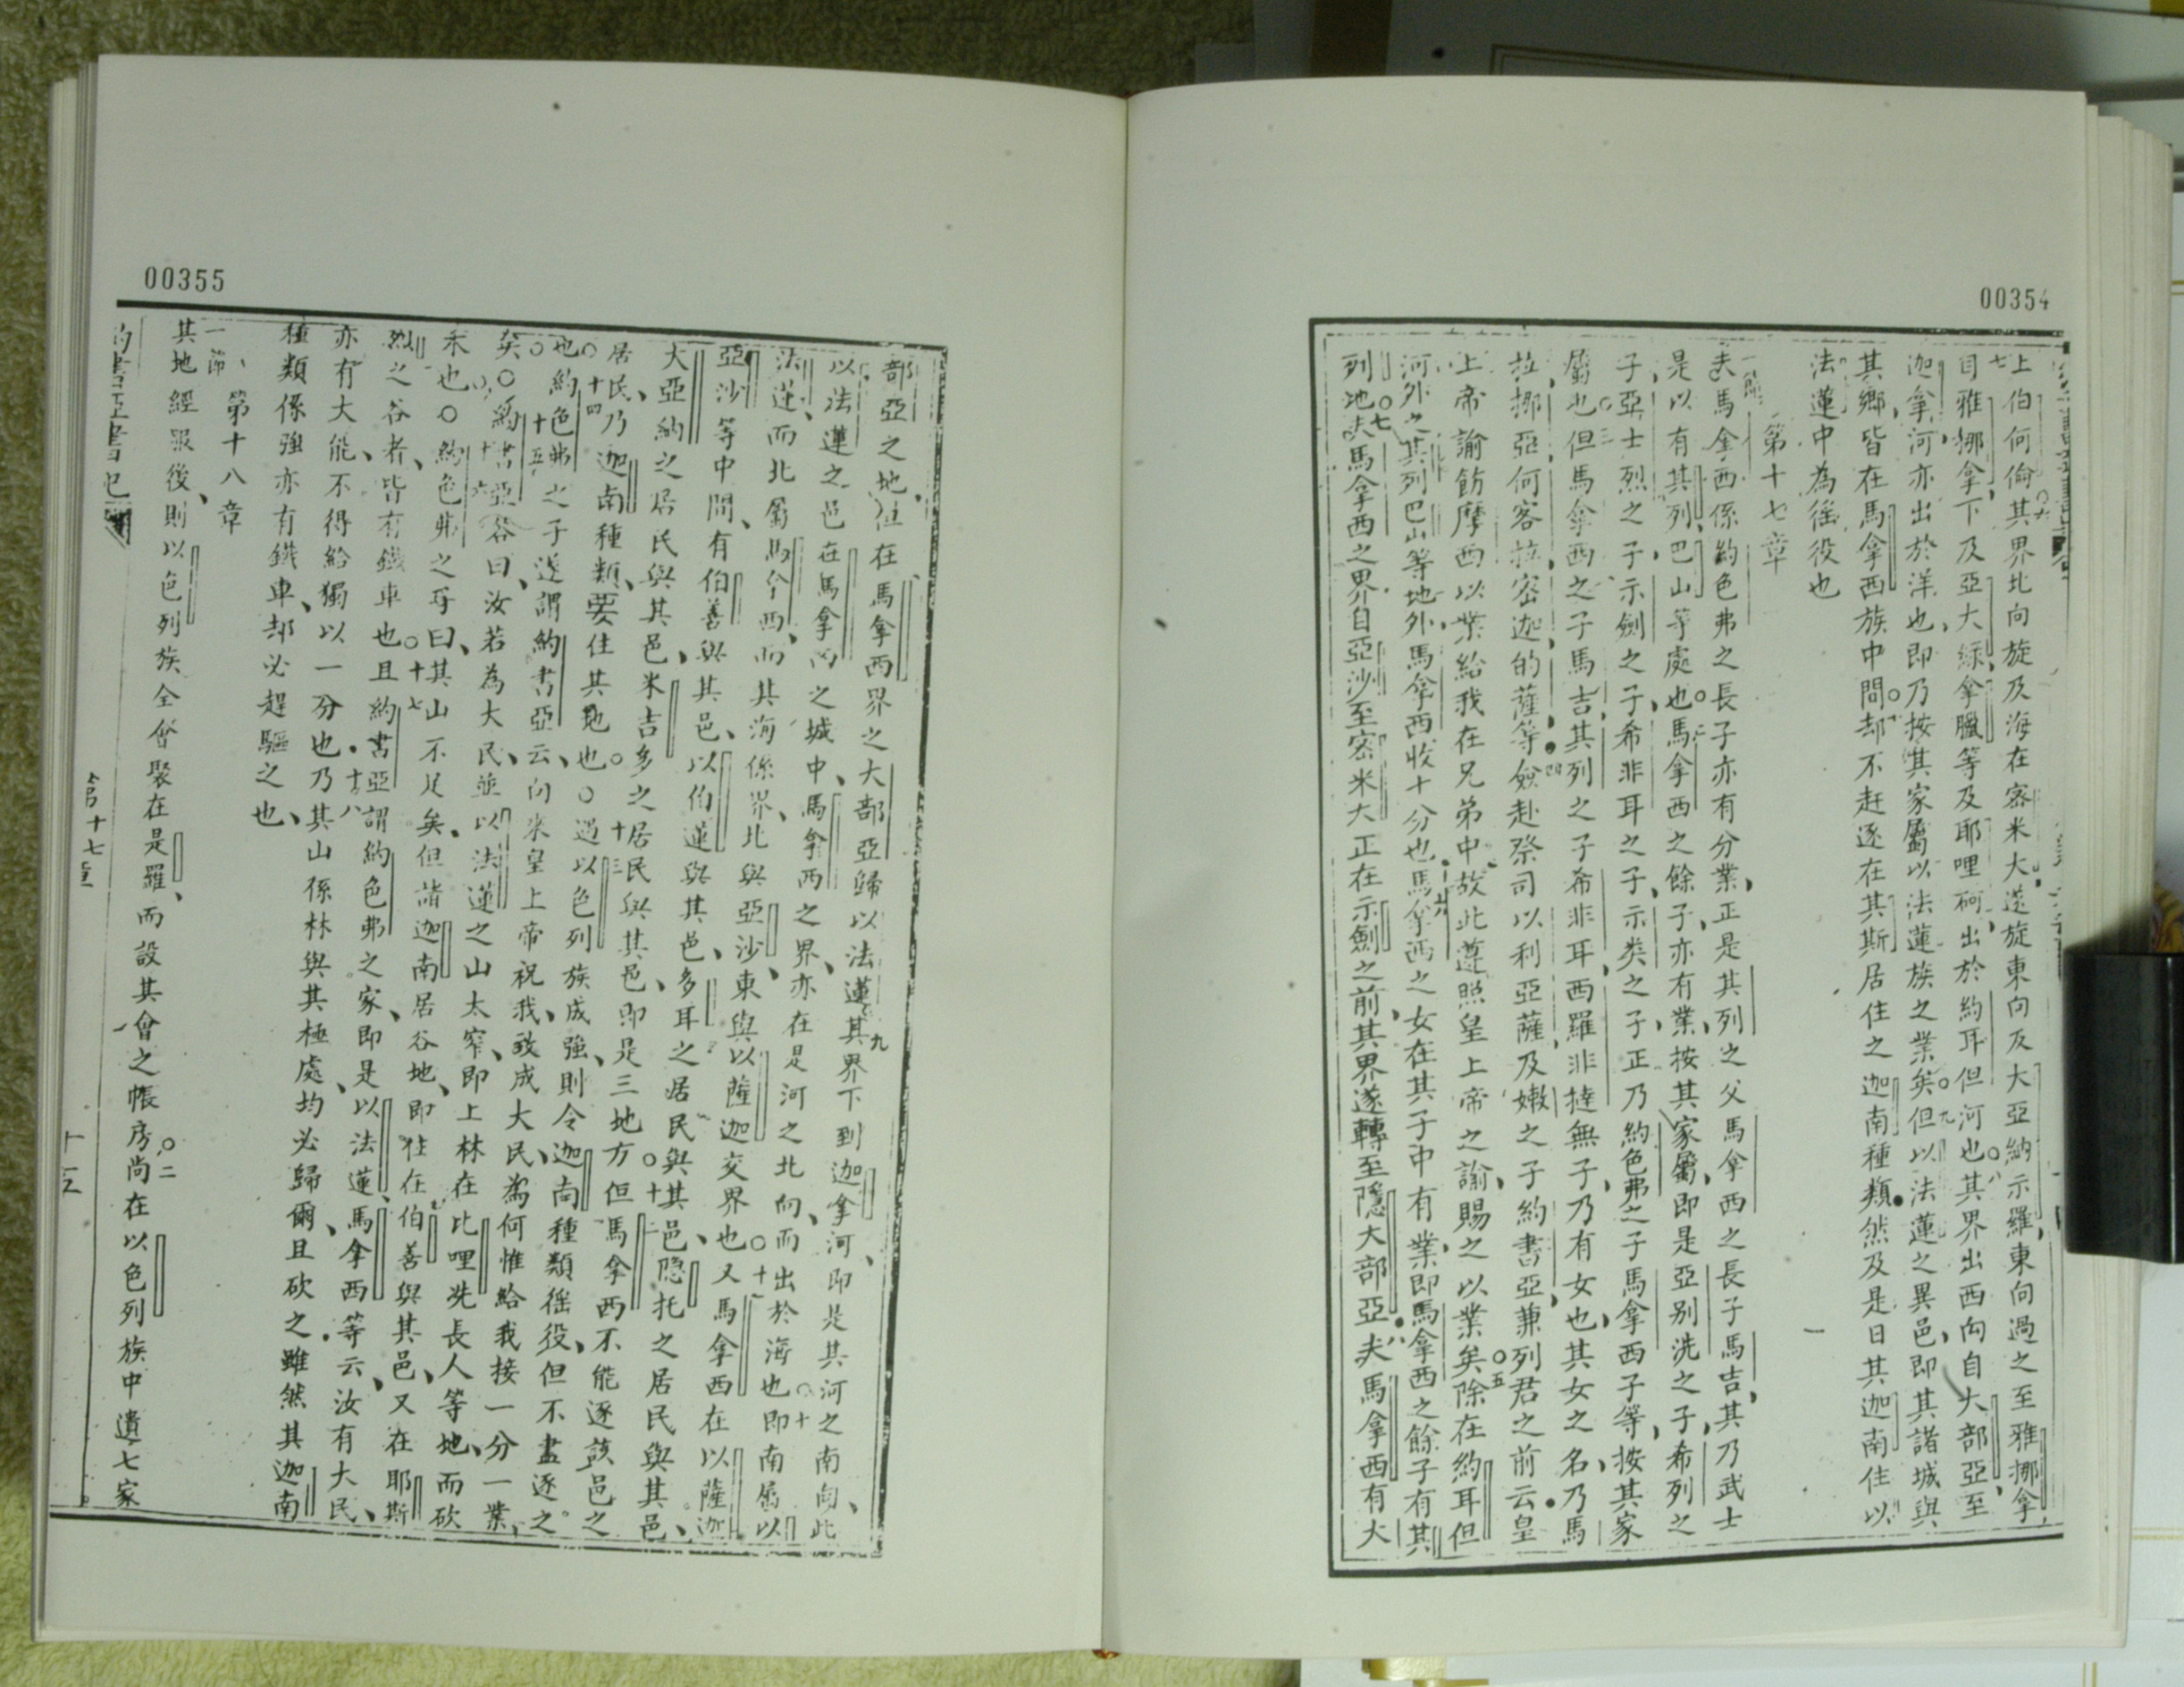 00354
上伯何倫其界北向旋及海在密米大遂旋東向及大亞納示羅東向過之至雅挪拿
七
自雅挪拿下及亞大綠拿臘等及耶哩柯出於約耳但河也其界出西向自大部亞至
迦拿河亦出於洋也即乃按其家屬以法蓮族之業矣但以法蓮之異邑即其諸城與
其鄉皆在馬拿西族中間却不赶逐在其斯居住之迦南種類然及是日其迦南住以
法蓮中為徭役也
第十七章
夫馬拿西係約色弗之長子亦有分業正是其列之父馬拿西之長子馬吉其乃武士
是以有其列巴山等處也馬拿西之餘子亦有業按其家屬即是亞別洗之子希列之
子亞士烈之子示劍之子希非耳之子示类之子正乃約色弗之子馬拿西子等按其家
屬也但馬拿西之子馬吉其列之子希非耳西羅非撻無子乃有女也其女之名乃馬
拉挪亞何客拉密迦的薩等僉赴祭司以利亞薩及嫩之子約書亞兼列君之前云皇
上帝諭飭摩西以業給我在兄弟中故此遵照皇上帝之諭賜之以業矣除在約耳但
河外之其列巴山等地外馬拿西收十分也馬拿西之女在其子中有業即馬拿西之餘子有其
列地夫馬拿西之界自亞沙至密米大正在示劍之前其界遂轉至隱大部亞夫馬拿西有大
00355
部亞之地但在馬拿西界之大部亞歸以法蓮其界下到迦拿河即是其河之南向此
以法蓮之邑在馬拿西之城中馬拿西之界亦在是河之北向而出於海也即南屬以
法蓮而北屬馬拿西而其海係界北與亞沙東與以薩迦交界也又馬拿西在以薩迦
亞沙等中間有伯善與其邑以伯蓮與其邑多耳之居民與其邑隱托之居民與其邑
大亞納之居民與其邑米吉多之居民與其邑即是三地方但馬拿西不能逐該邑之
居民乃迦南種類要住其地也過以色列族成強則令迦南種類徭役但不盡逐之
也約色弗之子遂謂約書亞云向來皇上帝祝我致成大民為何惟給我接一分一業
矣約書亞答曰汝若為大民並以法蓮之山太窄即上林在比哩洗長人等地而砍
禾也約色弗之子曰其山不足矣但諸迦南居谷地即住在伯善與其邑又在耶斯
烈之谷者皆有鐵車也且約書亞謂約色弗之家即是以法蓮馬拿西等云汝有大民
亦有大能不得給獨以一分也乃其山係林與其極處均必歸爾且砍之雖然其迦南
種類係強亦有鐵車却必趕驅之也
第十八章
一節
其地經服後則以色列族全會聚在是羅而設其會之帳房尚在以色列族中遺七家
約書亞書
第十七章
十五